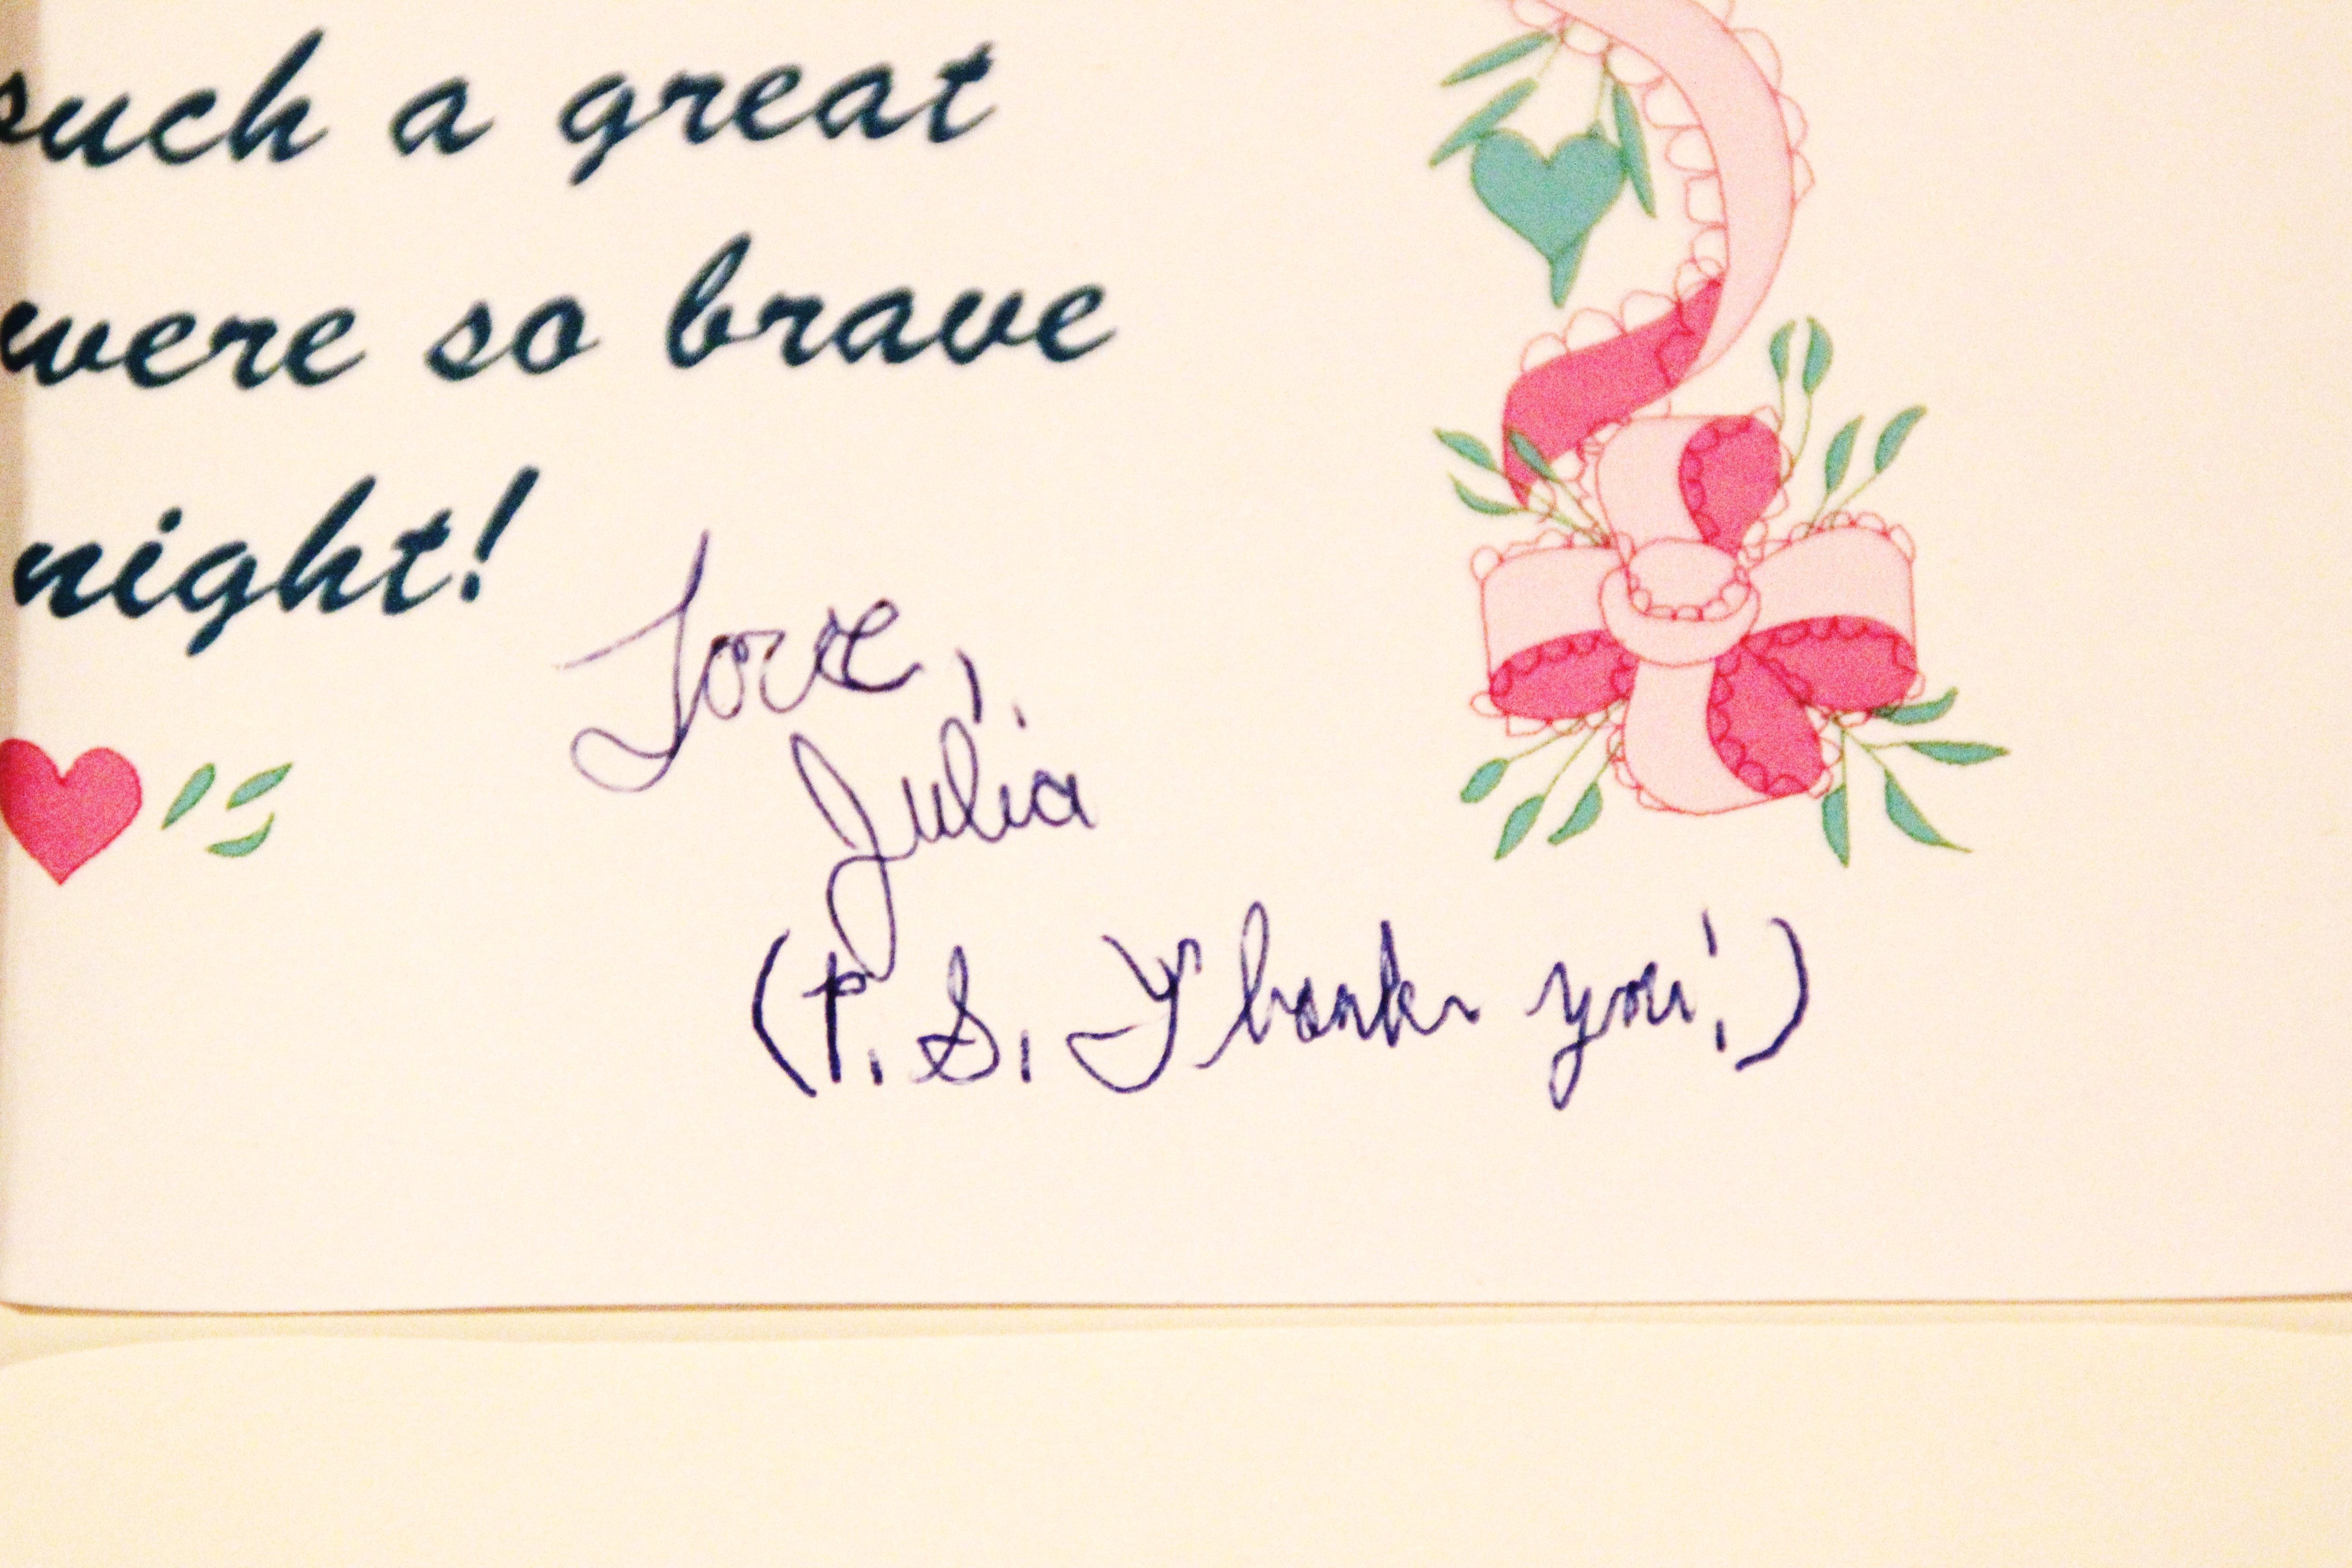 such a great
were so brave
night!
Love,
Julia
(P.S. Thank you!)